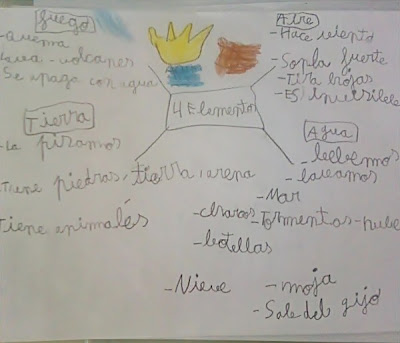 Fuego
Quema
Lava - volcanes
Se apaga con agua
Aire
- Hace viento
- Sopla fuerte
- Tira hojas
- ES invisible
4 Elementos
Tierra
- La pisamos
Tiene piedras, tierra, arena
Tiene animales
Agua
- bebemos
- lavamos
- Mar
- charcos - Tormentas - nube
- botellas
- Nieve
- moja
- Sale del gijo